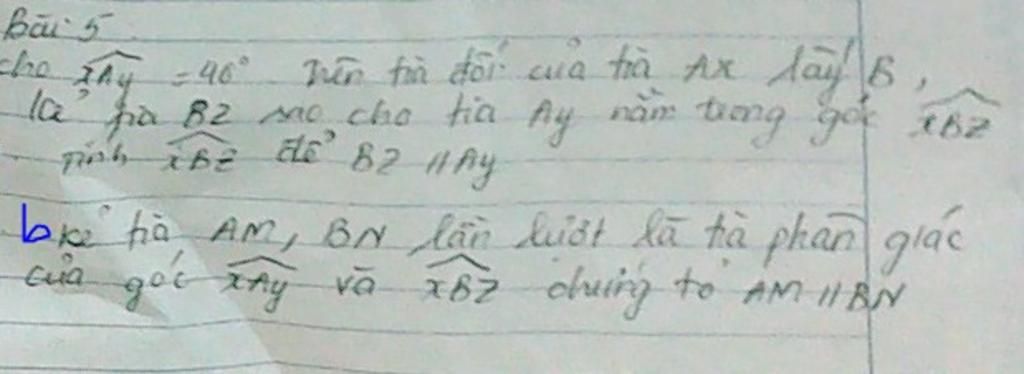 Bài 5
cho xAy = 46° Trên tia đối của tia AX lấy B,
kẻ tia BZ sao cho tia Ay nằm trong góc xBZ
Tính xBZ để BZ // Ay
b kẻ tia AM, BN lần lượt là tia phân giác
của góc xAy và xBZ chứng tỏ AM // BN